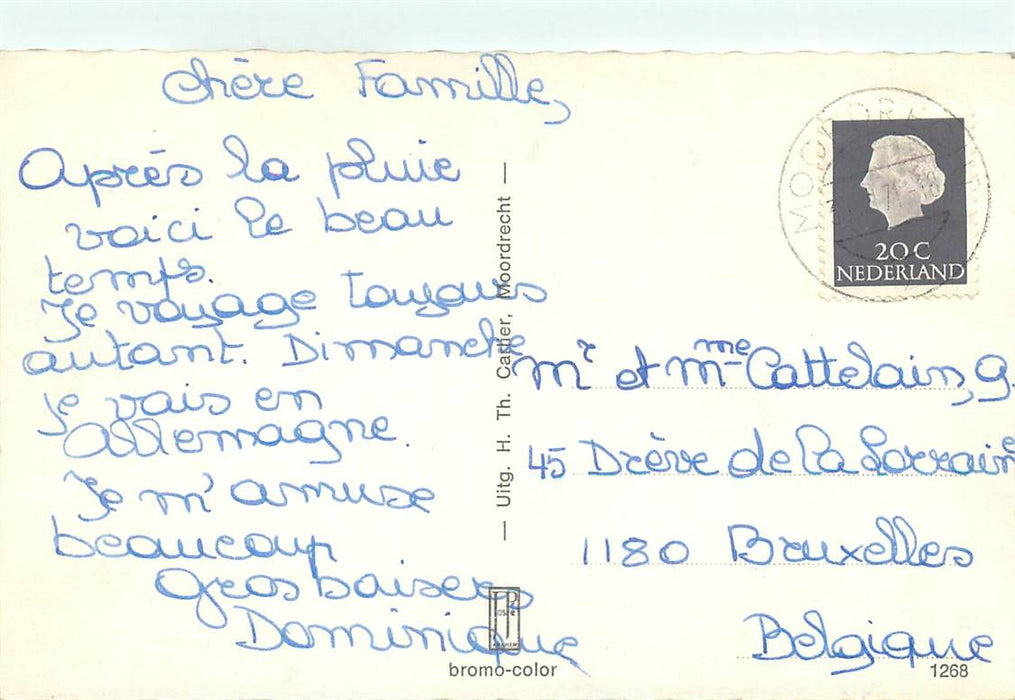 chère Famille,
Après la pluie
voici le beau
temps.
Je voyage toujours
autant. Dimanche
je vais en
Allemagne.
Je m'amuse
beaucoup
Gros baisers
Dominique
— Uitg. H. Th. Castier, Moordrecht —
bromo-color
20C
NEDERLAND
Mr et Mme Cattelain, G
45 Drève de la Lorraine
1180 Bruxelles
Belgique
1268